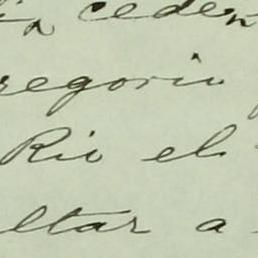 ceden
regorio
Rio el
ltar a